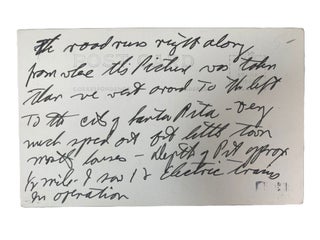 the road runs right along
from where this Picture was taken
then we went around To the left
To the city of Santa Rita - very
much spread out but little town
mostly houses - Depth of Pit approx
½ mile - I saw 12 Electric trains
in operation